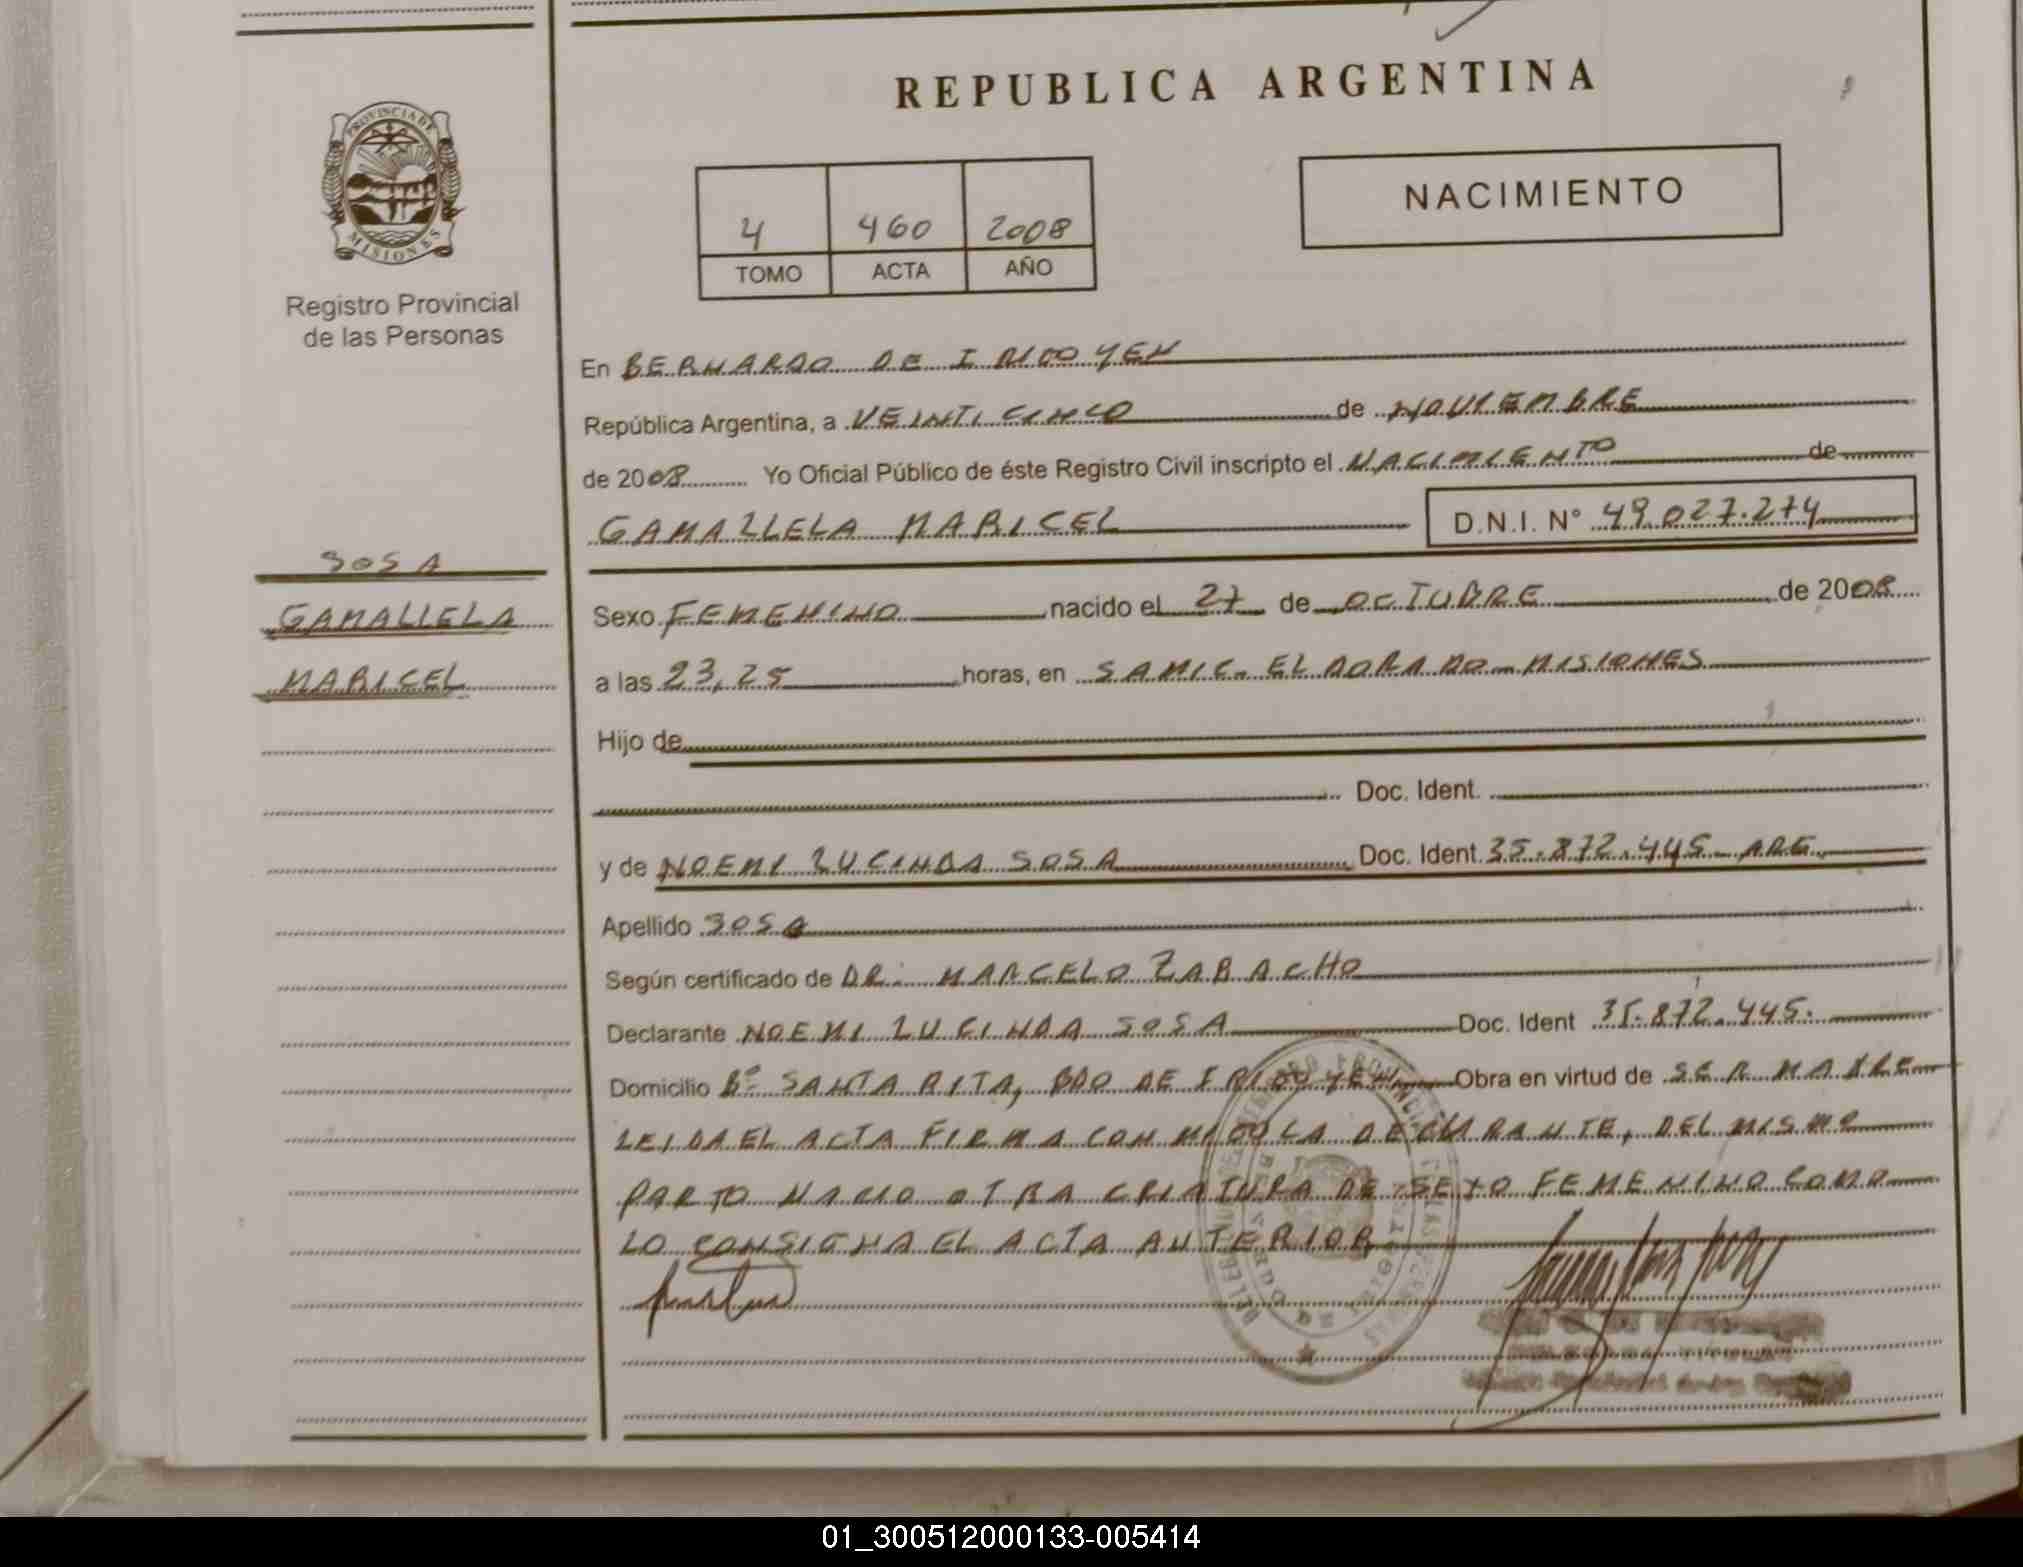 REPUBLICA ARGENTINA
PROVINCIA DE
MISIONES
Registro Provincial
de las Personas
4 460 2008
TOMO ACTA AÑO
NACIMIENTO
En BERNARDO DE IRIGOYEN
República Argentina, a VEINTICINCO de NOVIEMBRE
de 2008 Yo Oficial Público de éste Registro Civil inscripto el NACIMIENTO de
GAMALLELA MARICEL D.N.I. N° 49.027.274
SOSA
GAMALLELA
MARICEL
Sexo FEMENINO nacido el 27 de OCTUBRE de 2008
a las 23,25 horas, en SAMIC. ELDORADO-MISIONES
Hijo de
Doc. Ident.
y de NOEMI LUCINDA SOSA Doc. Ident. 35.872.445- ARG.
Apellido SOSA
Según certificado de DR. MARCELO ZARACHO
Declarante NOEMI LUCINDA SOSA Doc. Ident 35.872.445.
Domicilio B° SANTA RITA, BDO DE IRIGOYEN Obra en virtud de SER MADRE
LEIDA EL ACTA FIRMA CONMIGO LA DECLARANTE, DEL MISMO
PARTO NACIO OTRA CRIATURA DE SEXO FEMENINO COMO
LO CONSIGNA EL ACTA ANTERIOR
01_300512000133-005414